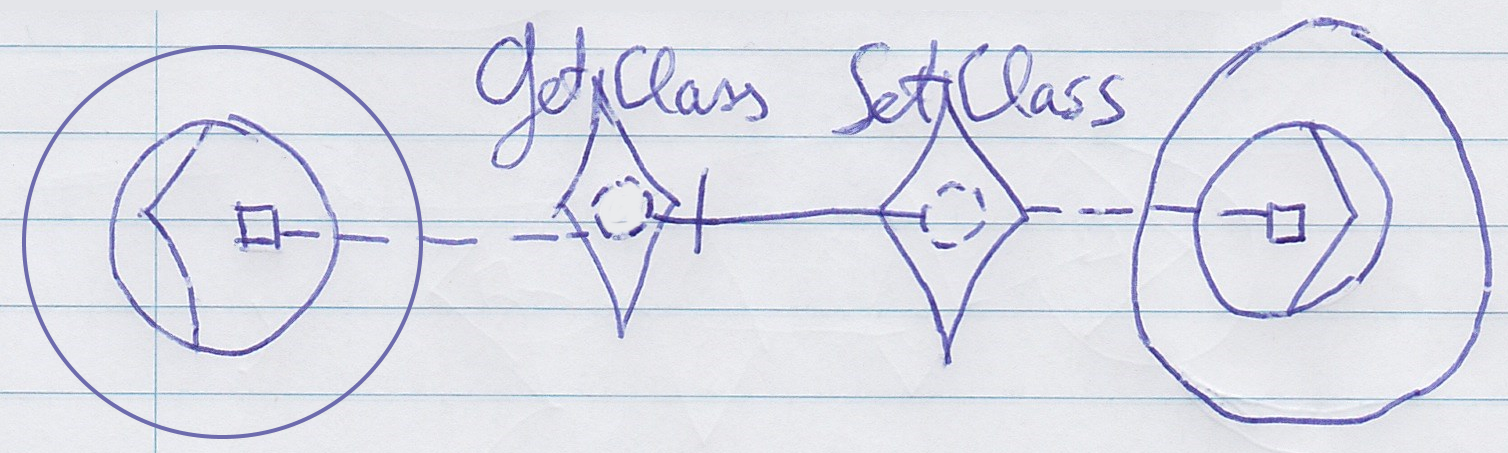 Get Class Set Class